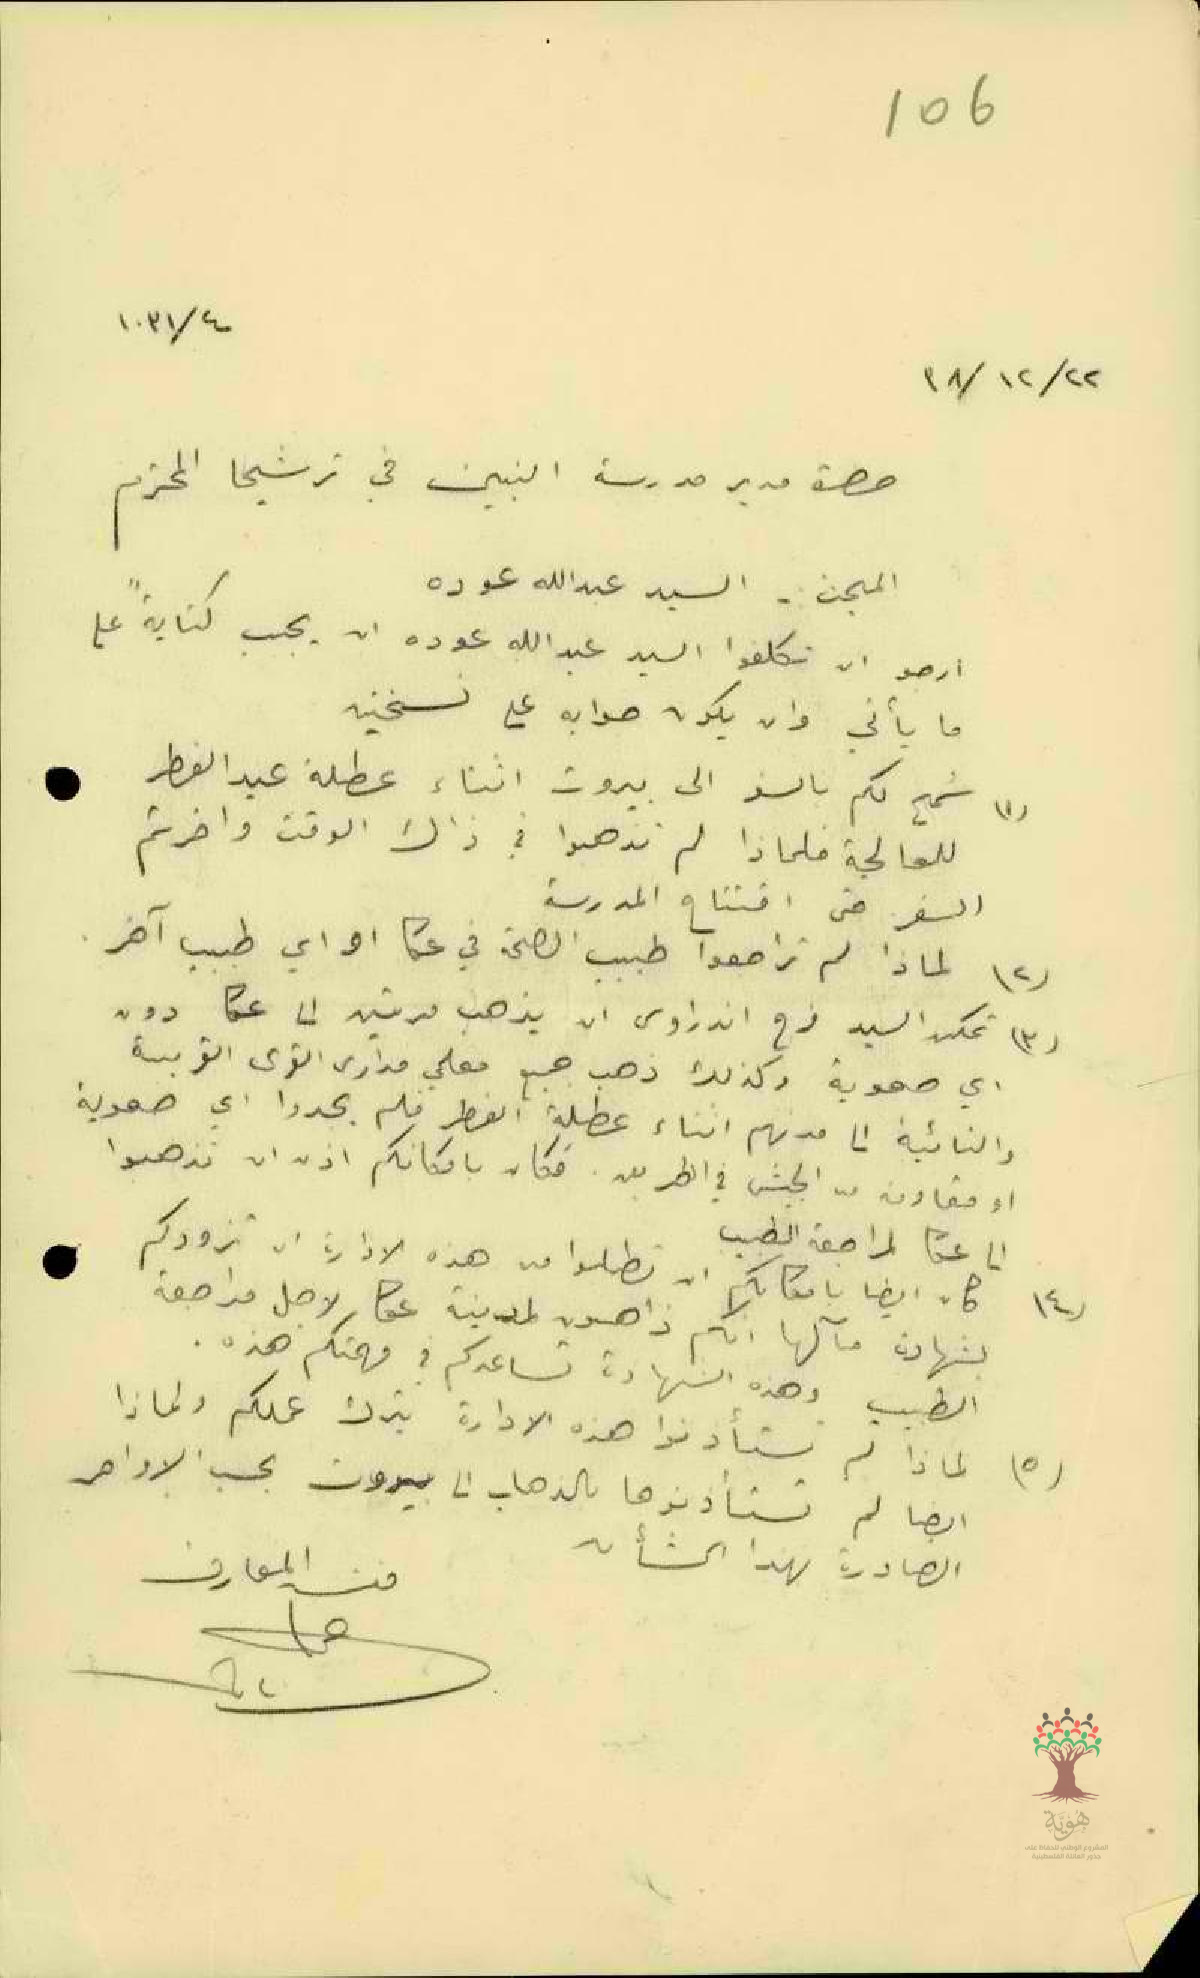 106
١٠٣١/٤
٣٨/١٢/٢٢
حضرة مدير مدرسة البنين في ترشيحا المحترم
المبحث :- السيد عبدالله عوده
ارجو ان تكلفوا السيد عبدالله عوده ان يجيب كتابةً على
ما يأتي وان يكون جوابه على نسختين
(١) سُمح لكم بالسفر الى بيروت اثناء عطلة عيد الفطر
للمعالجة فلماذا لم تذهبوا في ذاك الوقت واخرتم
السفر حتى افتتاح المدرسة
(٢) لماذا لم تراجعوا طبيب الصحة في عكا او اي طبيب آخر .
(٣) تمكن السيد فرح اندراوس ان يذهب مرتين الى عكا دون
اي صعوبة وكذلك ذهب جميع معلمي مدارس القرى القريبة
والنائية الى مدنهم اثناء عطلة الفطر فلم يجدوا اي صعوبة
او مقاومة من الجيش في الطريق . فكان بامكانكم اذن ان تذهبوا
الى عكا لمراجعة الطبيب
(٤) كان ايضا بامكانكم ان تطلبوا من هذه الادارة ان تزودكم
بشهادة مآلها انكم ذاهبون لمدينة عكا لاجل مراجعة
الطبيب وهذه الشهادة تساعدكم في مهمتكم هذه .
(٥) لماذا لم تستأذنوا هذه الادارة بترك عملكم ولماذا
ايضا لم تستأذنوها بالذهاب الى بيروت بحسب الاوامر
الصادرة بهذا الشأن
مفتش المعارف
هوية
المشروع الوطني للحفاظ على
جذور العائلة الفلسطينية